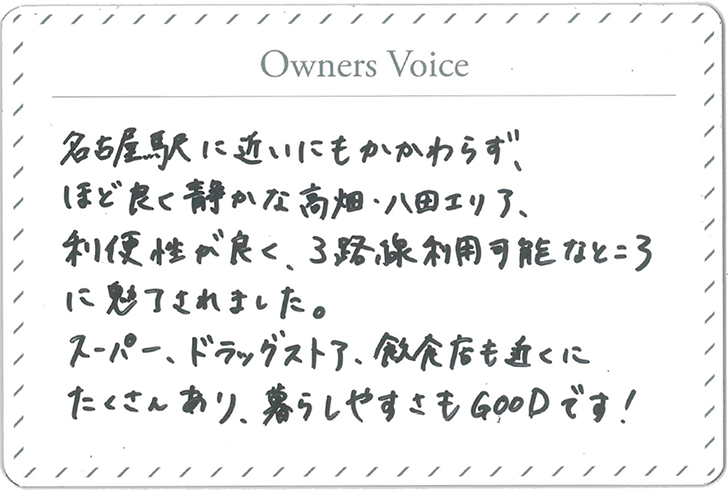 Owners Voice
名古屋駅に近いにもかかわらず、
ほど良く静かな高畑・八田エリア、
利便性が良く、3路線利用可能なところ
に魅了されました。
スーパー、ドラッグストア、飲食店も近くに
たくさんあり、暮らしやすさもGOODです!